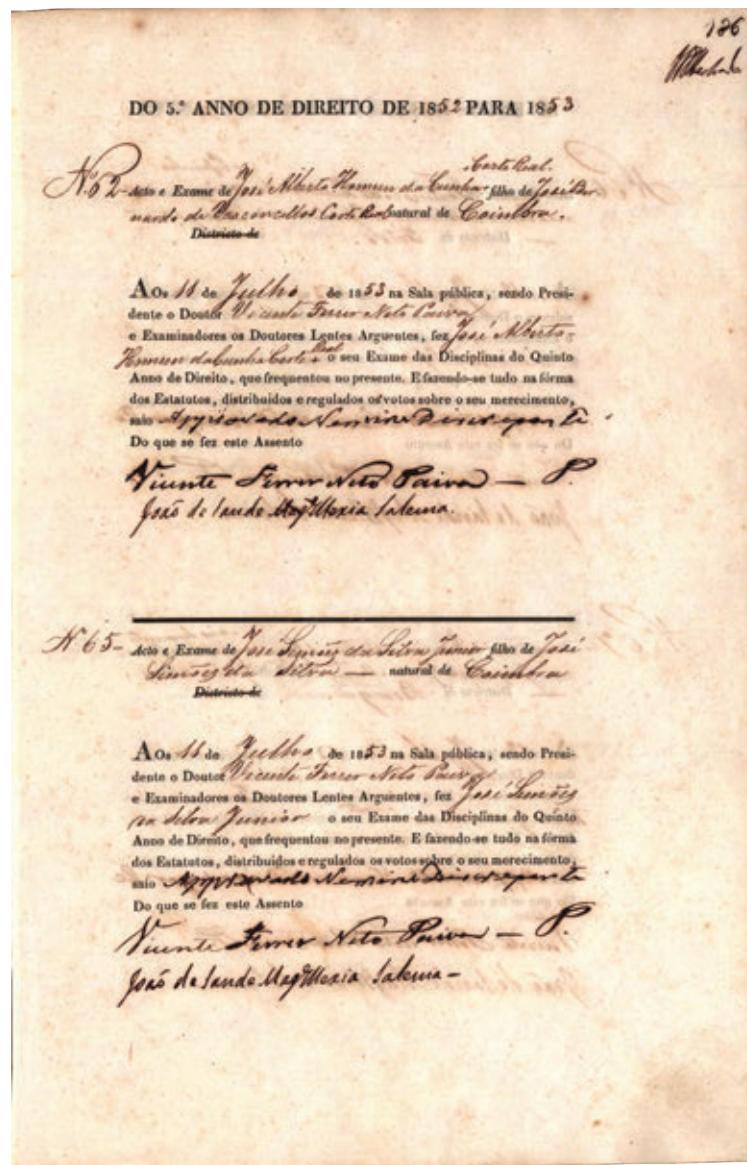 186
DO 5.º ANNO DE DIREITO DE 1852 PARA 1853
Corte Real.
Nº 62 - Acto e Exame de José Alberto Homem da Cunha filho de José Ber-
nardo de Vasconcellos Corte Real natural de Coimbra.
Districto de
AOs 11 de Julho de 1853 na Sala pública, sendo Presi-
dente o Doutor Vicente Ferrer Neto Paiva
e Examinadores os Doutores Lentes Arguentes, fez José Alberto
Homem da Cunha Corte Real o seu Exame das Disciplinas do Quinto
Anno de Direito, que frequentou no presente. E fazendo-se tudo na fórma
dos Estatutos, distribuidos e regulados os votos sobre o seu merecimento,
saío Approvado Nemine Discrepante
Do que se fez este Assento
Vicente Ferrer Neto Paiva — P.
João de Sande Magᵉˢ Mexia Salema.
Nº 65 - Acto e Exame de José Simões da Silva Junior filho de José
Simões da Silva — natural de Coimbra
Districto de
AOs 11 de Julho de 1853 na Sala pública, sendo Presi-
dente o Doutor Vicente Ferrer Neto Paiva
e Examinadores os Doutores Lentes Arguentes, fez José Simões
da Silva Junior o seu Exame das Disciplinas do Quinto
Anno de Direito, que frequentou no presente. E fazendo-se tudo na fórma
dos Estatutos, distribuidos e regulados os votos sobre o seu merecimento,
saío Approvado Nemine Discrepante
Do que se fez este Assento
Vicente Ferrer Neto Paiva — P.
João de Sande Magᵉˢ Mexia Salema -